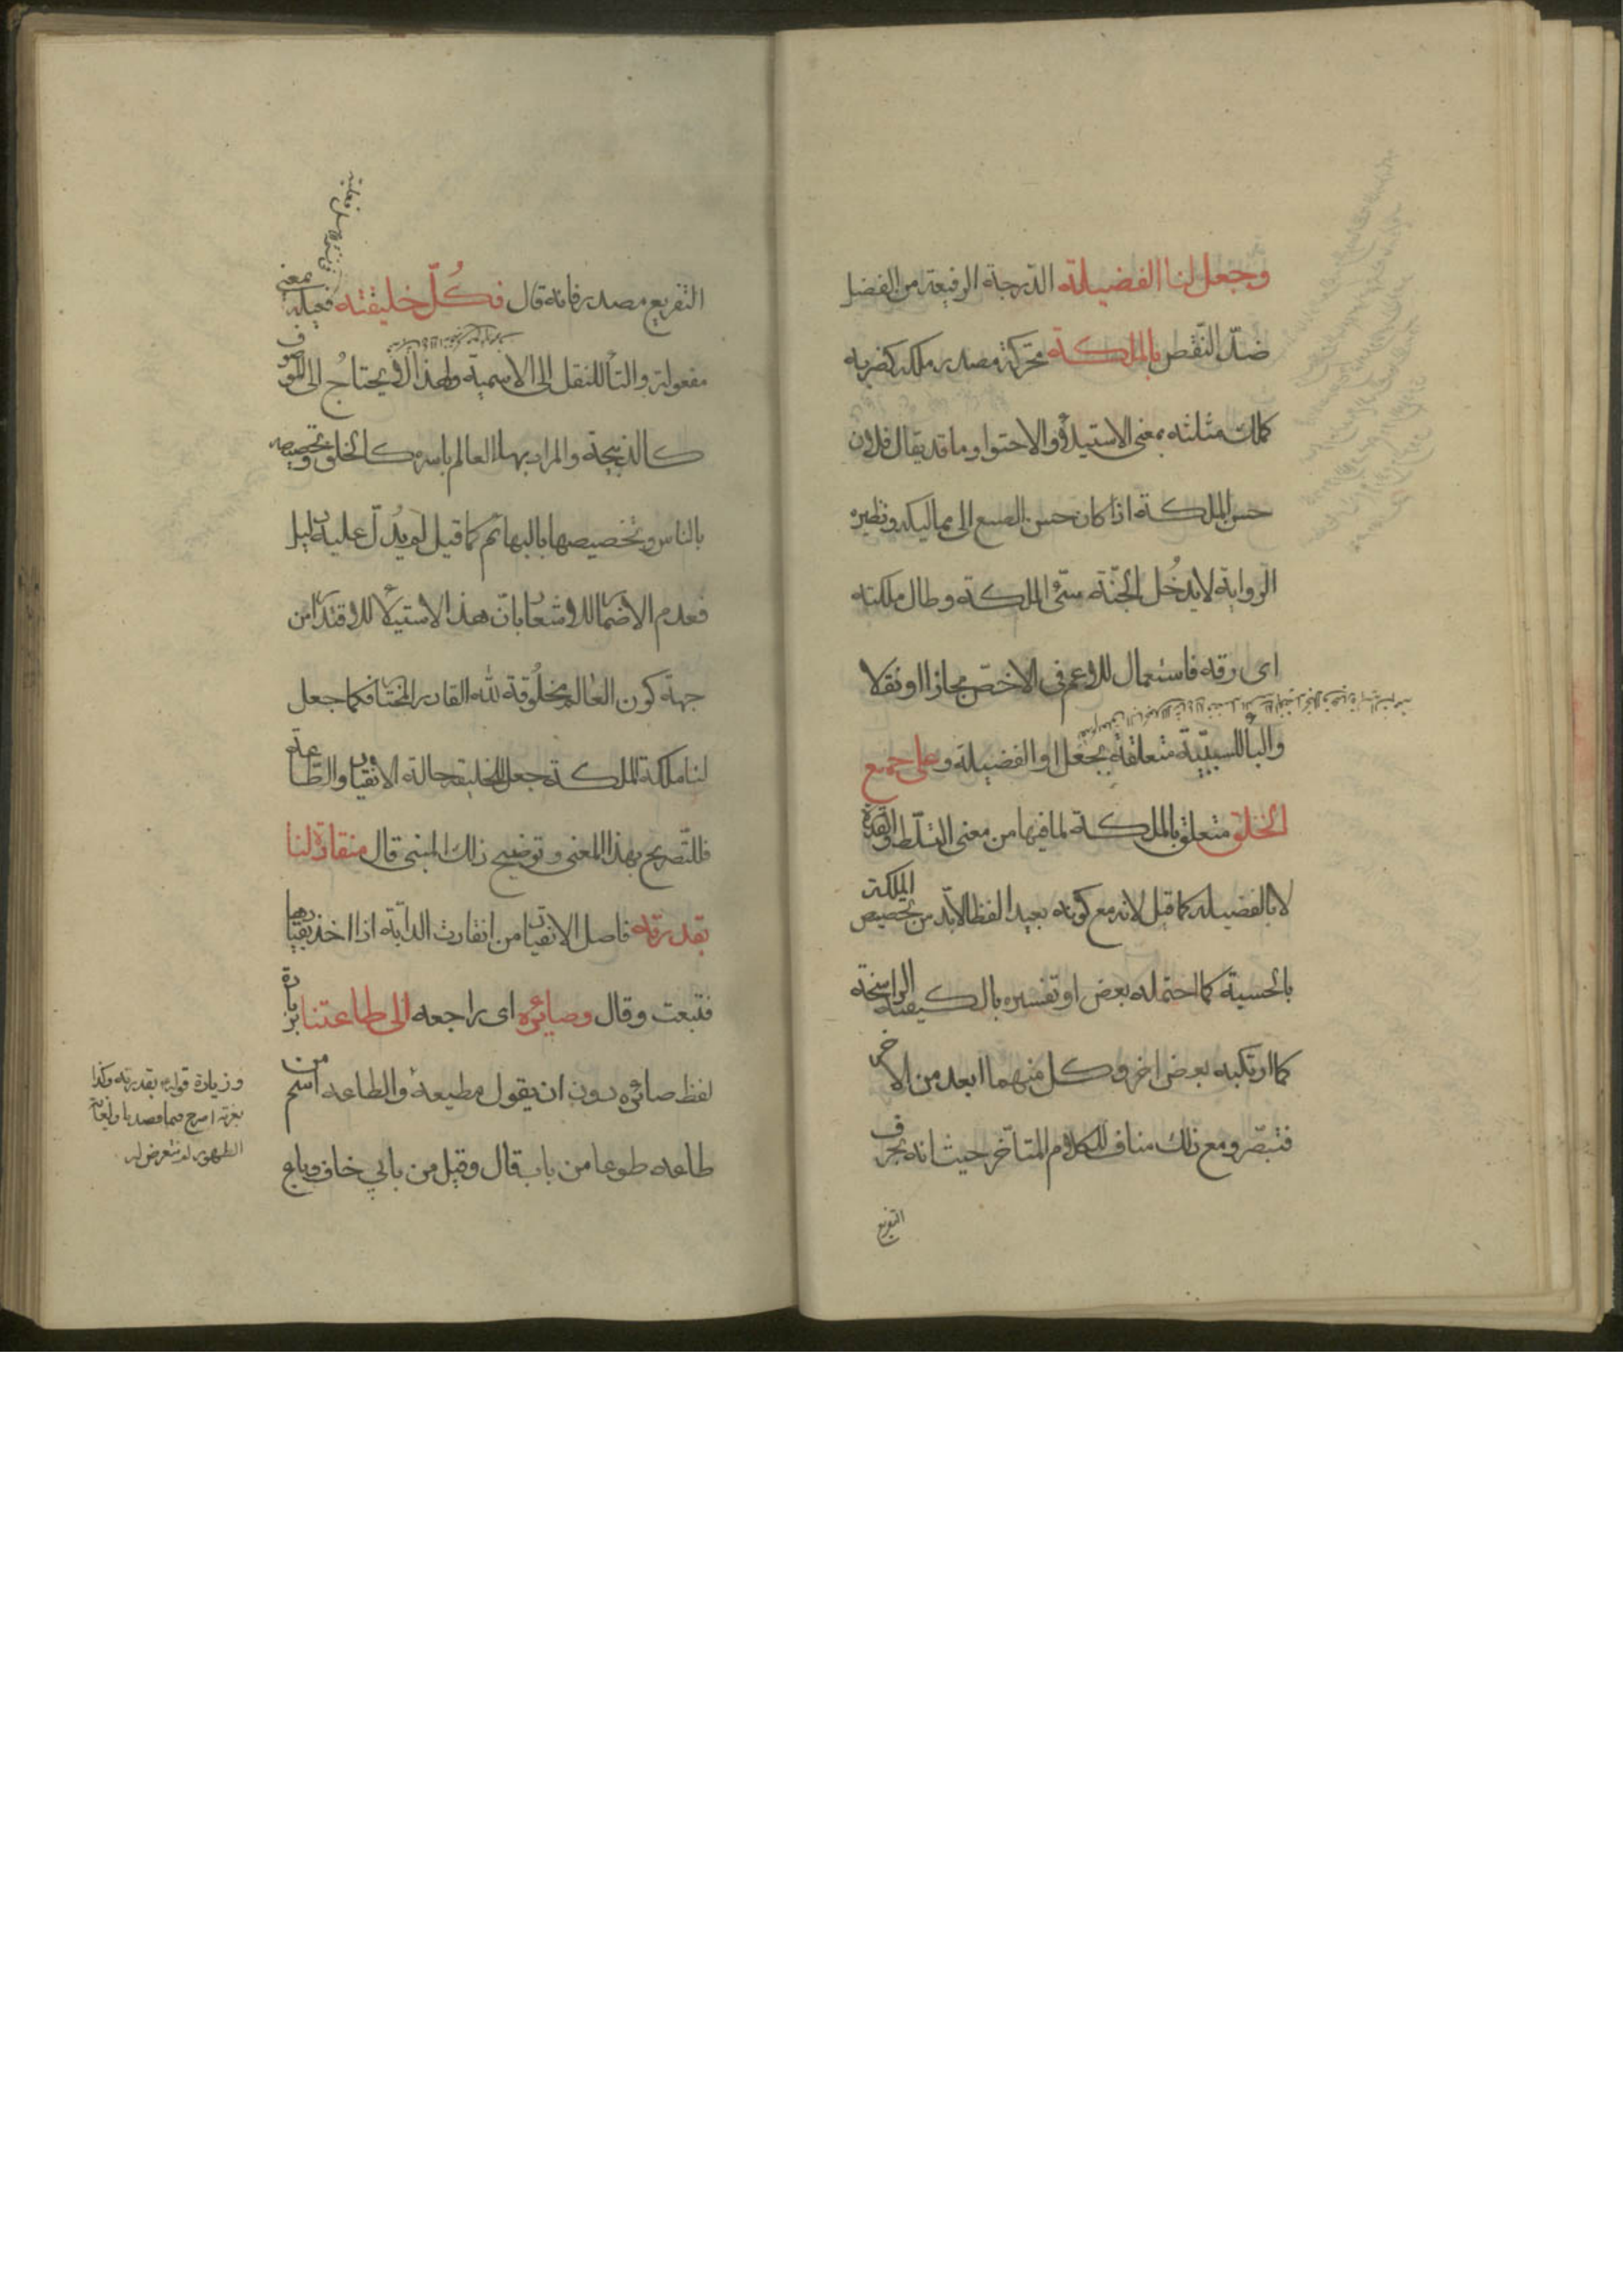 وجعل لنا الفضيلة الدّرجة الرفيعة من الفضل
ضدّ النّقص بالملكة محرّكة مصدر ملكه كضربه
مثلثه بمعنى الاستيلاء والاحتواء وما قد يقال فلان
حسن الملكة اذا كان حسن الصنع الى مماليكه ونظيره
الرواية لا يدخُل الجنّة سيّئ الملكة وطال ملكته
اى رقه فاستعمال للاعم فى الاخصّ مجازا او نقلا
والبأ للسببيّة متعلقة بجعل او الفضيلة وعلى جميع
الخلق متعلق بالملكة لما فيها من معنى التسلّط والقدرة
لا بالفضيلة كما قيل لانه مع كونه بعيد الفظا لابّد من تخصيص الملكة
بالحسية كما احتمله بعض او تفسيره بالكيفية الراسخة
كما ارتكبه بعض اخر وكل منهما ابعد من الاخر
فتبصّر ومع ذلك مناف للكلام المتأخر حيث انه بحرف
التفريع
التفريع مصدر فانه قال فكُلّ خليقته فعيلة بمعنى
مفعولة والتأ للنقل الى الاسمية ولهذا لا يحتاجُ الى الموصوف
كالذبيحة والمراد بها العالم باسره كالخلق وتخصيصه
بالناس وتخصيصها بالبهائم كما قيل لم يدُلّ عليه دليل
فعدم الاضمار للاشعار بانّ هذا الاستيلأ للاقتدار من
جهة كون العالم مخلُوقة لله القادر المختار فكما جعل
لنا ملكة الملكة جعل للخليقة حالة الانقياد والطاعة
فللتّصريح بهذا المعنى وتوضيح ذلك المبنى قال منقادة لنا
بقدرته فاصل الانقياد من انقادت الدابّة اذا اخذ بقيادها
فتبعت وقال وصائرة اى راجعه الى طاعتنا بزيادة
لفظ صائره دون ان يقول مطيعة والطاعه اسم من
طاعه طوعا من باب قال وقيل من بابي خاف وباع
وزيادة قوله بقدرته وكذا
الظهور لم نتعرض له